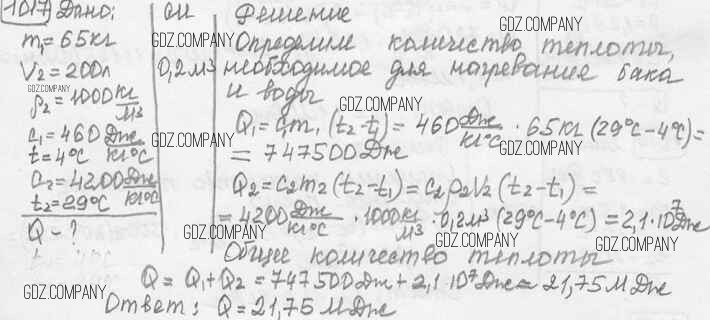 1017 Дано:
m₁=65кг
V₂=200л
ρ₂=1000 кг/м³
c₁=460 Дж/кг°С
t=4°С
c₂=4200 Дж/кг°С
t₂=29°С
Q-?
СИ
0,2м³
Решение
Определим количество теплоты,
необходимое для нагревание бака
и воды
Q₁=cm₁(t₂-t₁)=460 Дж/кг°С · 65кг (29°С-4°С)=
=747500Дж
Q₂=c₂m₂(t₂-t₁)=c₂ρ₂V₂(t₂-t₁)=
=4200 Дж/кг°С · 1000 кг/м³ · 0,2м³ (29°С-4°С)=2,1·10⁷Дж
Общее количество теплоты
Q=Q₁+Q₂=747500Дж+2,1·10⁷Дж=21,75МДж
Ответ: Q=21,75МДж
GDZ.COMPANY
GDZ.COMPANY
GDZ.COMPANY
GDZ.COMPANY
GDZ.COMPANY
GDZ.COMPANY
GDZ.COMPANY
GDZ.COMPANY
GDZ.COMPANY
GDZ.COMPANY
GDZ.COMPANY
GDZ.COMPANY